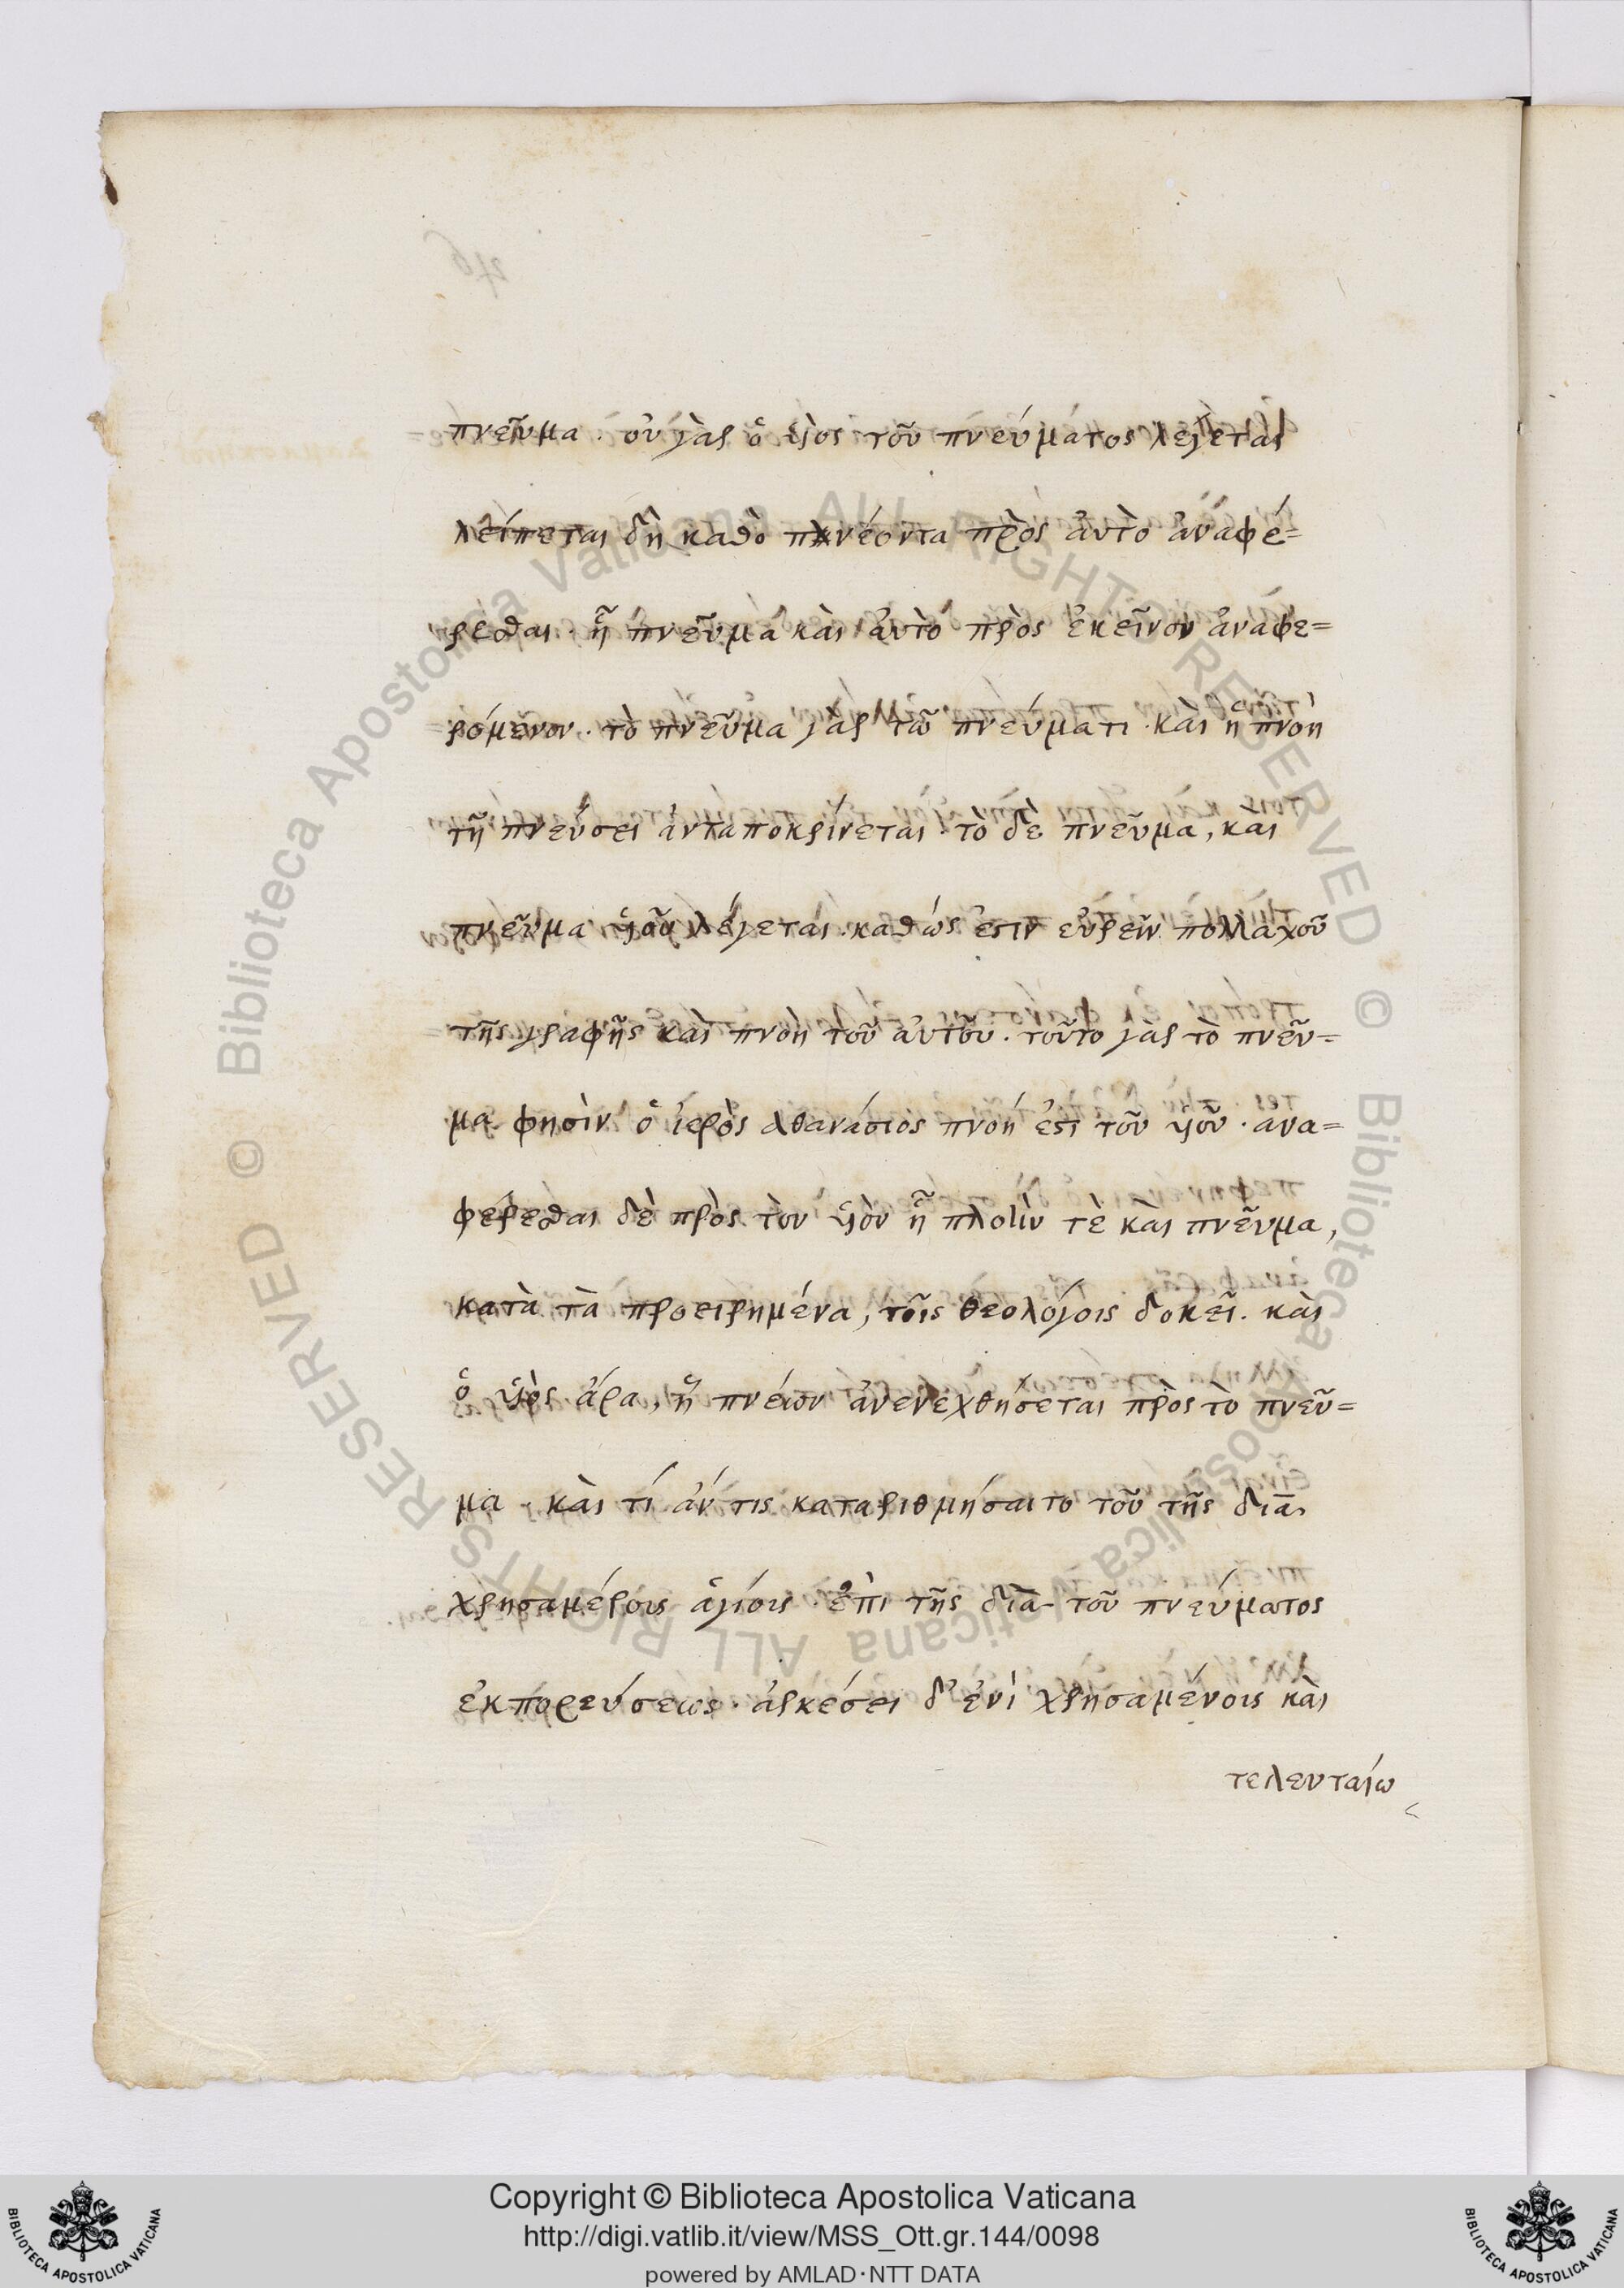 πνεῦμα. οὐ γὰρ ὁ ὑιὸς τοῦ πνεύματος λέγεται
λείπεται δὴ καθὸ πνέοντα πρὸς ἀυτὸ ἀναφέ=
ρεσθαι. ἧ πνεῦμα καὶ ἀυτὸ πρὸς ἐκεῖνον ἀναφε=
ρόμενον. τὸ πνεῦμα γὰρ τῶ πνεύματι. καὶ ἡ πνοὴ
τῆ πνεύσει ἀνταποκρίνεται. τὸ δὲ πνεῦμα, και
πνεῦμα ὑιοῦ λέγεται. καθώς ἐστιν εὑρεῖν πολλαχοῦ
τῆς γραφῆς καὶ πνοὴ τοῦ ἀυτοῦ. τοῦτο γὰρ τὸ πνεῦ=
μα φησὶν ὁ ἱερὸς Αθανάσιος πνοή ἐστι τοῦ ὑιοῦ. ἀνα=
φέρεσθαι δὲ πρὸς τὸν ὑιὸν ἧ τὲ καὶ πνεῦμα,
κατὰ τὰ προειρημένα, τοῖς θεολόγοις δοκεῖ. καὶ
ὁ ὑιὸς ἄρα, ἧ πνέων ἀνενεχθήσεται πρὸς τὸ πνεῦ=
μα. καὶ τί ἄν τις καταριθμήσαιτο τοῦ τῆς διὰ
ἁγίοις. ἐπὶ τῆς διὰ τοῦ πνεύματος
ἐκπορεύσεως. ἀρκέσει δ' ἑνὶ χρησαμένοις καὶ
τελευταίω
Copyright © Biblioteca Apostolica Vaticana
http://digi.vatlib.it/view/MSS_Ott.gr.144/0098
powered by AMLAD·NTT DATA
BIBLIOTECA APOSTOLICA VATICANA
BIBLIOTECA APOSTOLICA VATICANA
© Biblioteca Apostolica Vaticana ALL RIGHTS RESERVED
© Biblioteca Apostolica Vaticana ALL RIGHTS RESERVED